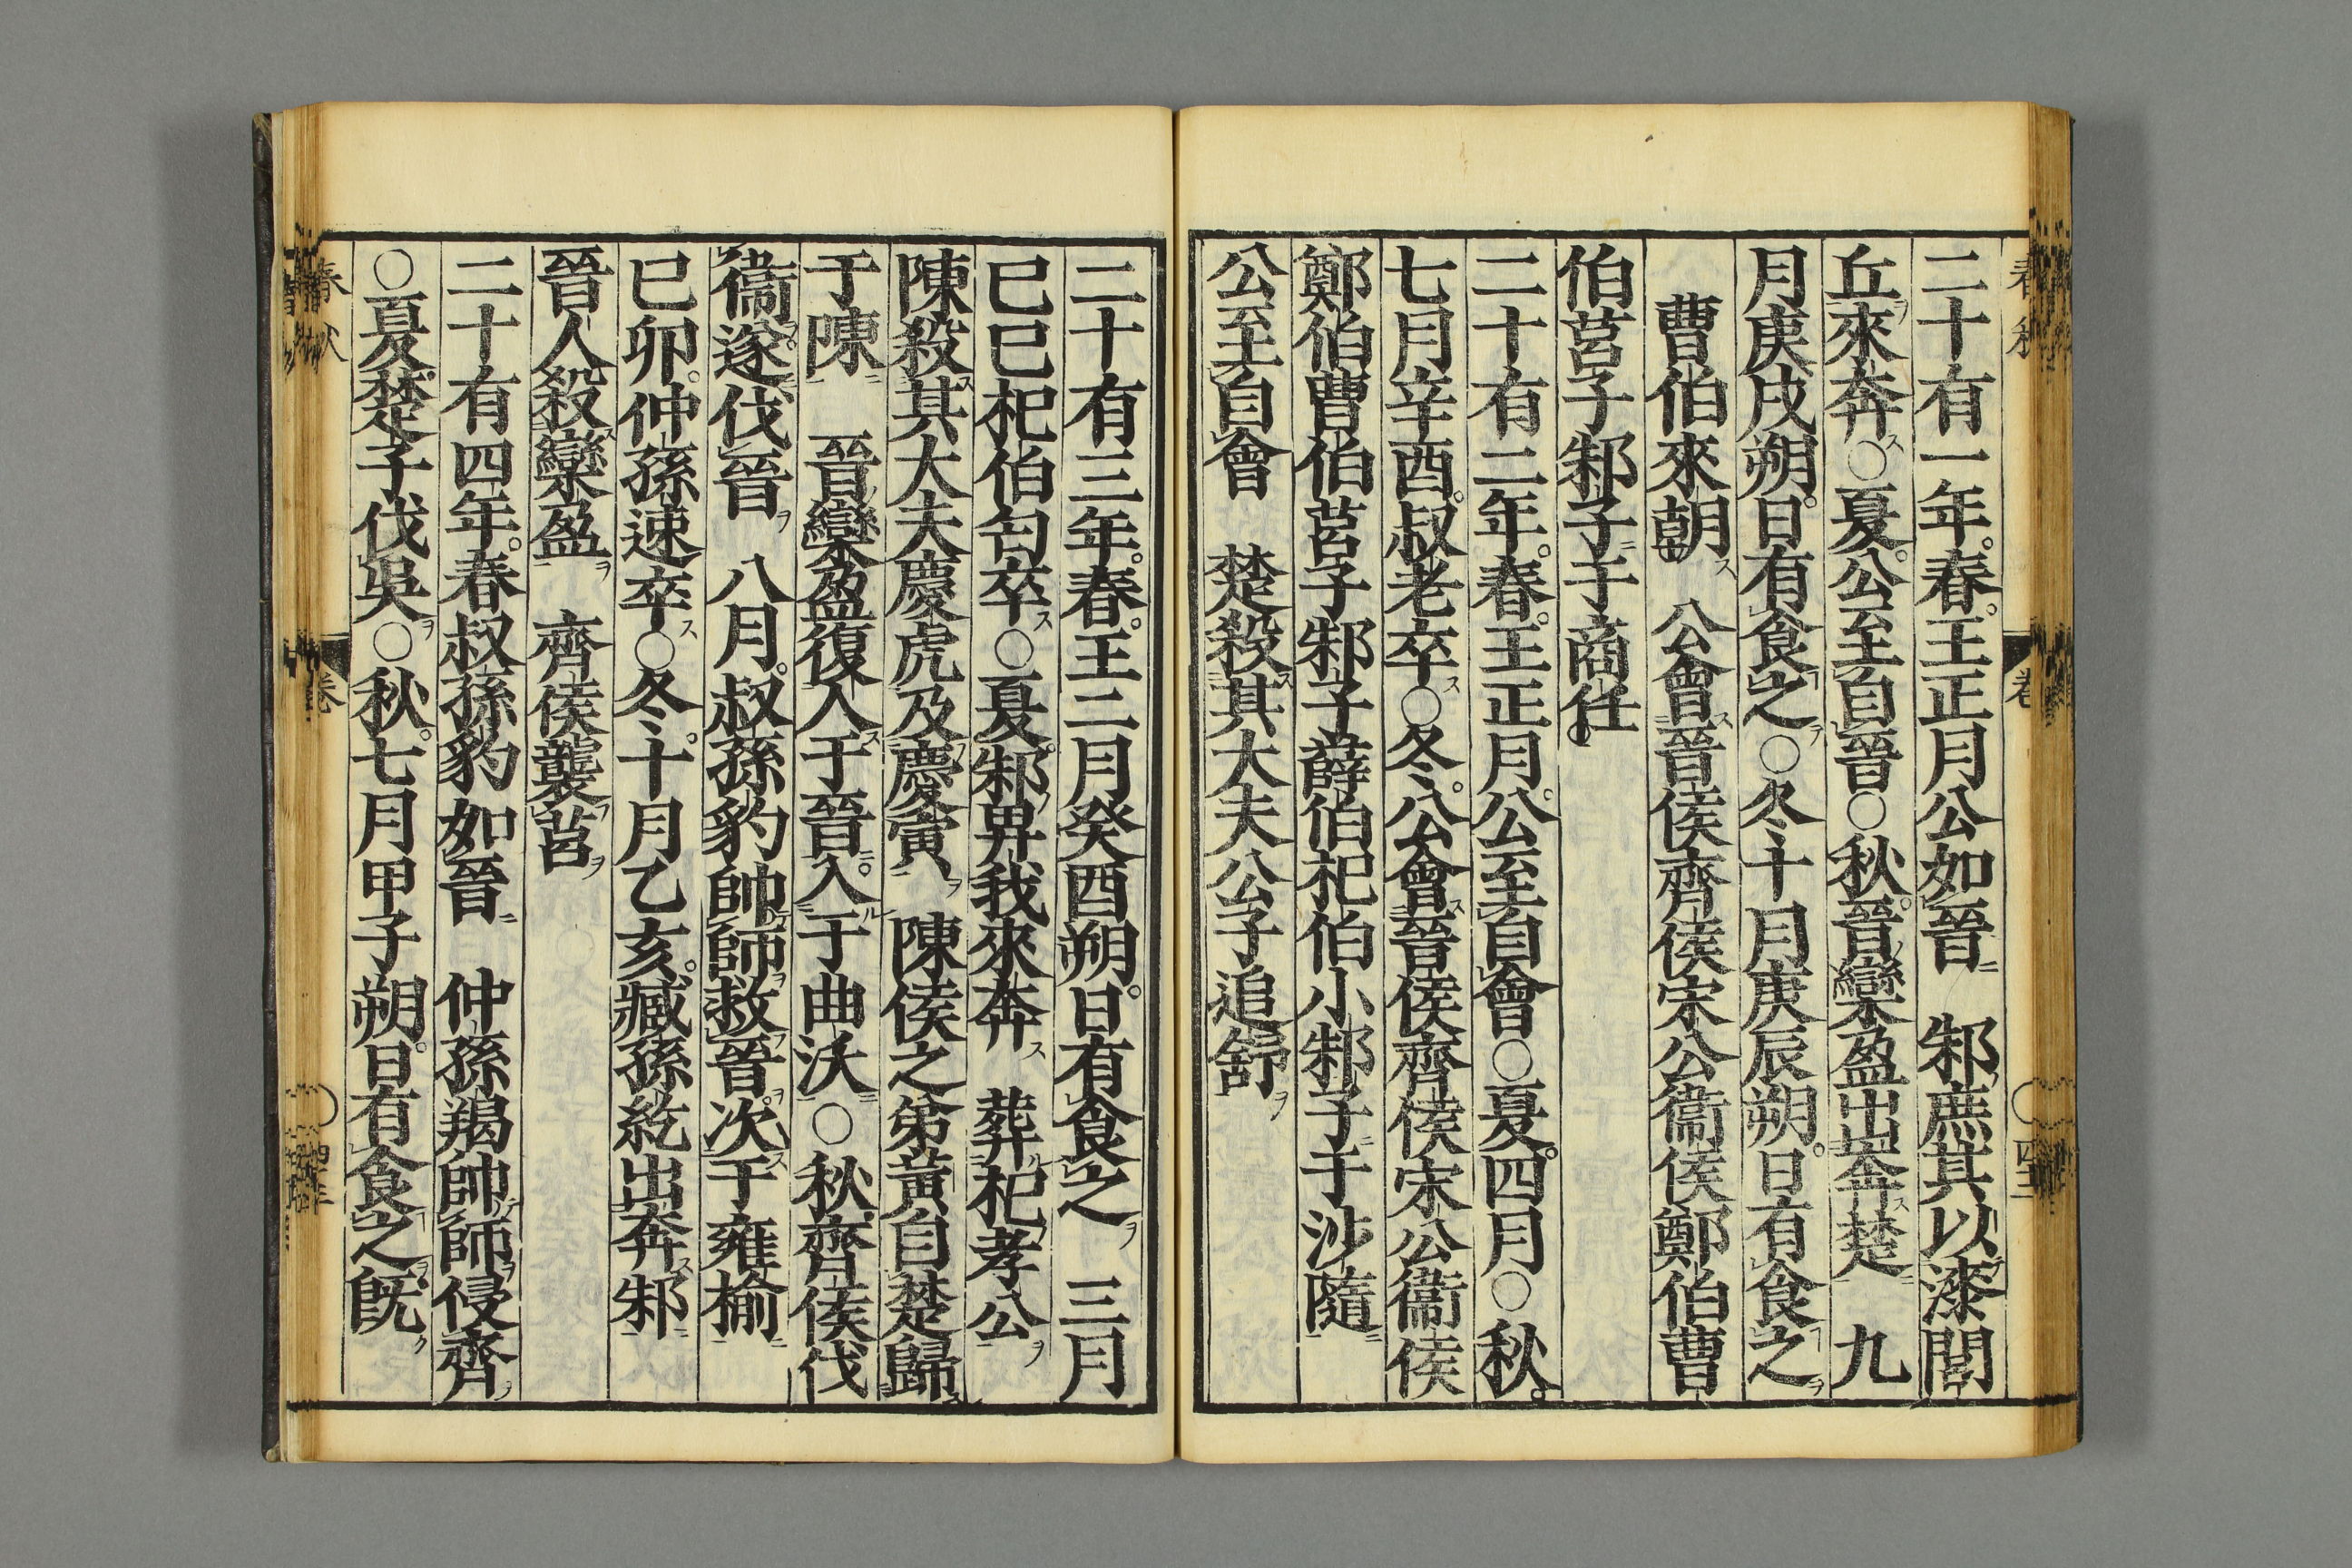 二十有一年春王正月公如晉　邾庶其以漆閭
丘來奔○夏公至自晉○秋晉欒盈出奔楚　九
月庚戌朔日有食之○冬十月庚辰朔日有食之
曹伯來朝　公會晉侯齊侯宋公衞侯鄭伯曹
伯莒子邾子于商任
二十有二年春王正月公至自會○夏四月○秋
七月辛酉叔老卒○冬公會晉侯齊侯宋公衞侯
鄭伯曹伯莒子邾子薛伯杞伯小邾子于沙隨
公至自會　楚殺其大夫公子追舒
二十有三年春王二月癸酉朔日有食之　三月
己巳杞伯匄卒○夏邾畀我來奔　葬杞孝公
陳殺其大夫慶虎及慶寅　陳侯之弟黃自楚歸
于陳　晉欒盈復入于晉入于曲沃○秋齊侯伐
衞遂伐晉　八月叔孫豹帥師救晉次于雍榆
己卯仲孫速卒○冬十月乙亥臧孫紇出奔邾
晉人殺欒盈　齊侯襲莒
二十有四年春叔孫豹如晉　仲孫羯帥師侵齊
○夏楚子伐吳○秋七月甲子朔日有食之既
春秋
卷